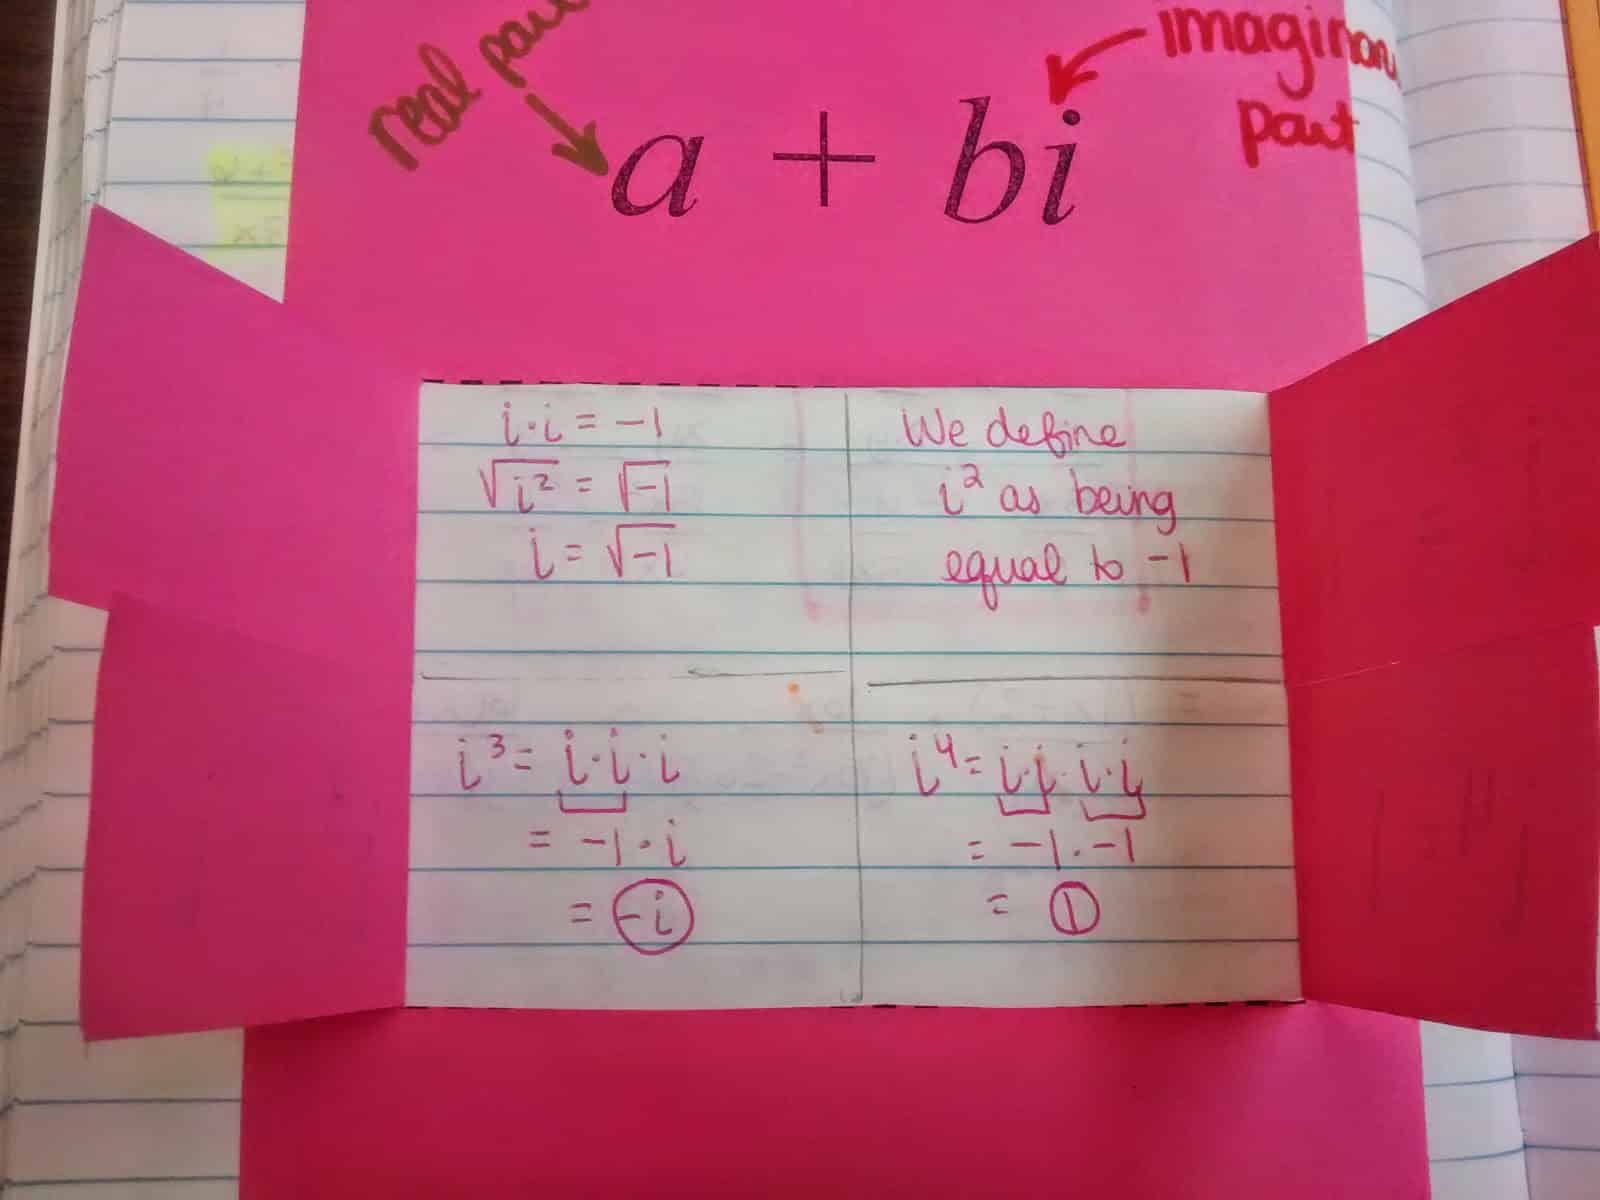 real part
imaginary
part
a + bi
i·i = -1
√i² = √-1
i = √-1
We define
i² as being
equal to -1
i³ = i·i·i
= -1·i
= -i
i⁴ = i·i·i·i
= -1·-1
= 1